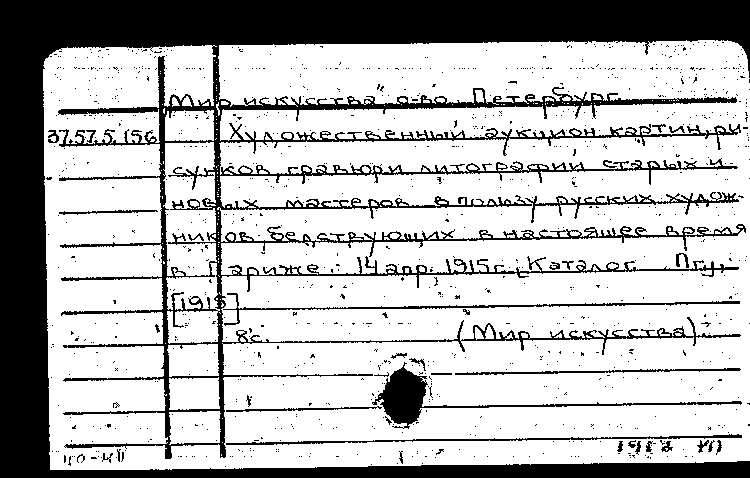 Мир искусства", о-во. Петербург.
37.57.5.156 Художественный аукцион картин, ри-
сунков, гравюр и литографий старых и
новых мастеров в пользу русских худож-
ников, бедствующих в настоящее время
в Париже. 14 апр. 1915г. Каталог. Пг.,
[1915]
8с. (Мир искусства).